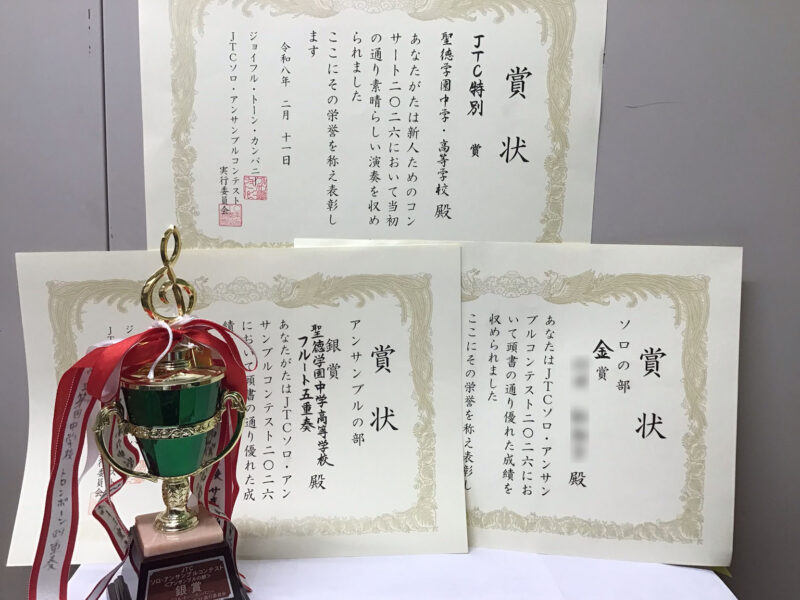 賞状
JTC特別 賞
聖徳学園中学・高等学校 殿
あなたがたは新人ためのコン
サート二〇二六において当初
の通り素晴らしい演奏を収め
られました
ここにその栄誉を称え表彰し
ます
令和八年 二月 十一日
ジョイフル・トーン・カンパニー
JTCソロ・アンサンブルコンテスト
実行委員会
賞状
ソロの部
金賞
殿
あなたはJTCソロ・アンサン
ブルコンテスト二〇二六にお
いて頭書の通り優れた成績を
収められました
ここにその栄誉を称え表彰し
賞状
アンサンブルの部
銀賞
聖徳学園中学高等学校
フルート五重奏 殿
あなたがたはJTCソロ・アン
サンブルコンテスト二〇二六
において頭書の通り優れた成
績
学園中学校 トロンボーン四重奏
JTC
ソロ・アンサンブルコンテスト
<アンサンブルの部>
銀賞